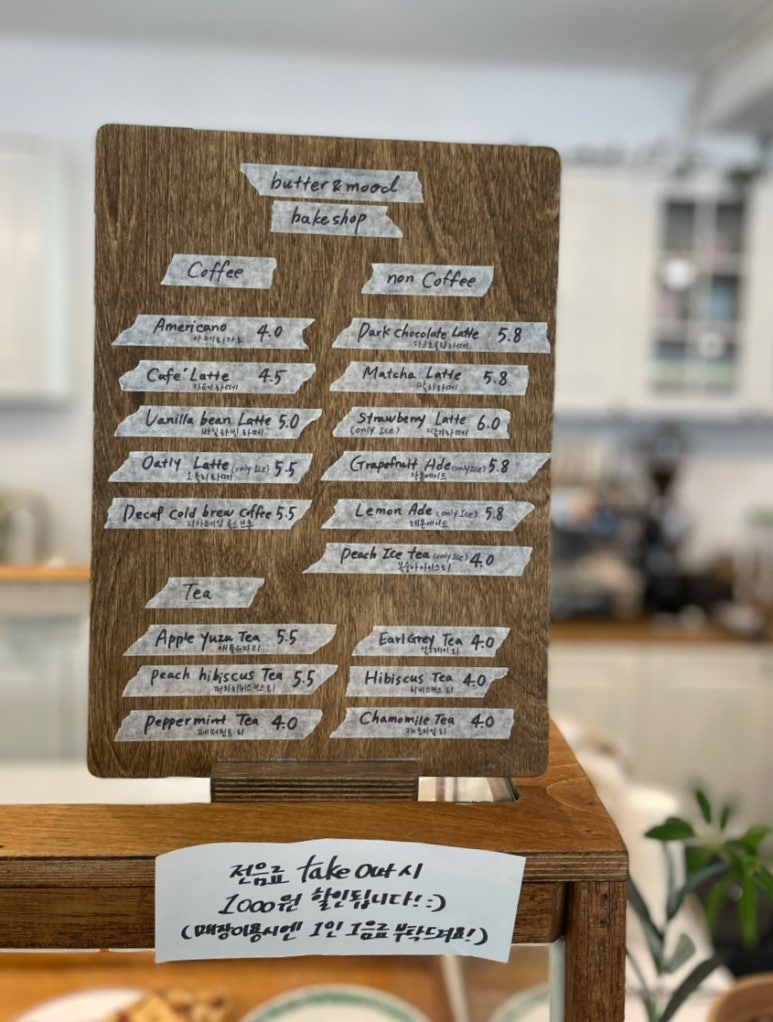 butter & mood
bakeshop
Coffee
Americano 4.0
아메리카노
Cafe' Latte 4.5
카페라떼
Vanilla bean Latte 5.0
바닐라빈라떼
Oatly Latte (only Ice) 5.5
오틀리라떼
Decaf cold brew coffee 5.5
디카페인 콜드브루
non Coffee
Dark chocolate Latte 5.8
다크초콜릿라떼
Matcha Latte 5.8
말차라떼
Strawberry Latte 6.0
(only Ice) 딸기라떼
Grapefruit Ade (only Ice) 5.8
자몽에이드
Lemon Ade (only Ice) 5.8
레몬에이드
peach Ice tea (only Ice) 4.0
복숭아아이스티
Tea
Apple Yuzu Tea 5.5
애플유자티
peach hibiscus Tea 5.5
피치히비스커스티
peppermint Tea 4.0
페퍼민트티
Earl Grey Tea 4.0
얼그레이티
Hibiscus Tea 4.0
히비스커스티
Chamomile Tea 4.0
캐모마일티
전음료 take out시
1000원 할인됩니다! :)
(매장이용시엔 1인 1음료 부탁드려요!)